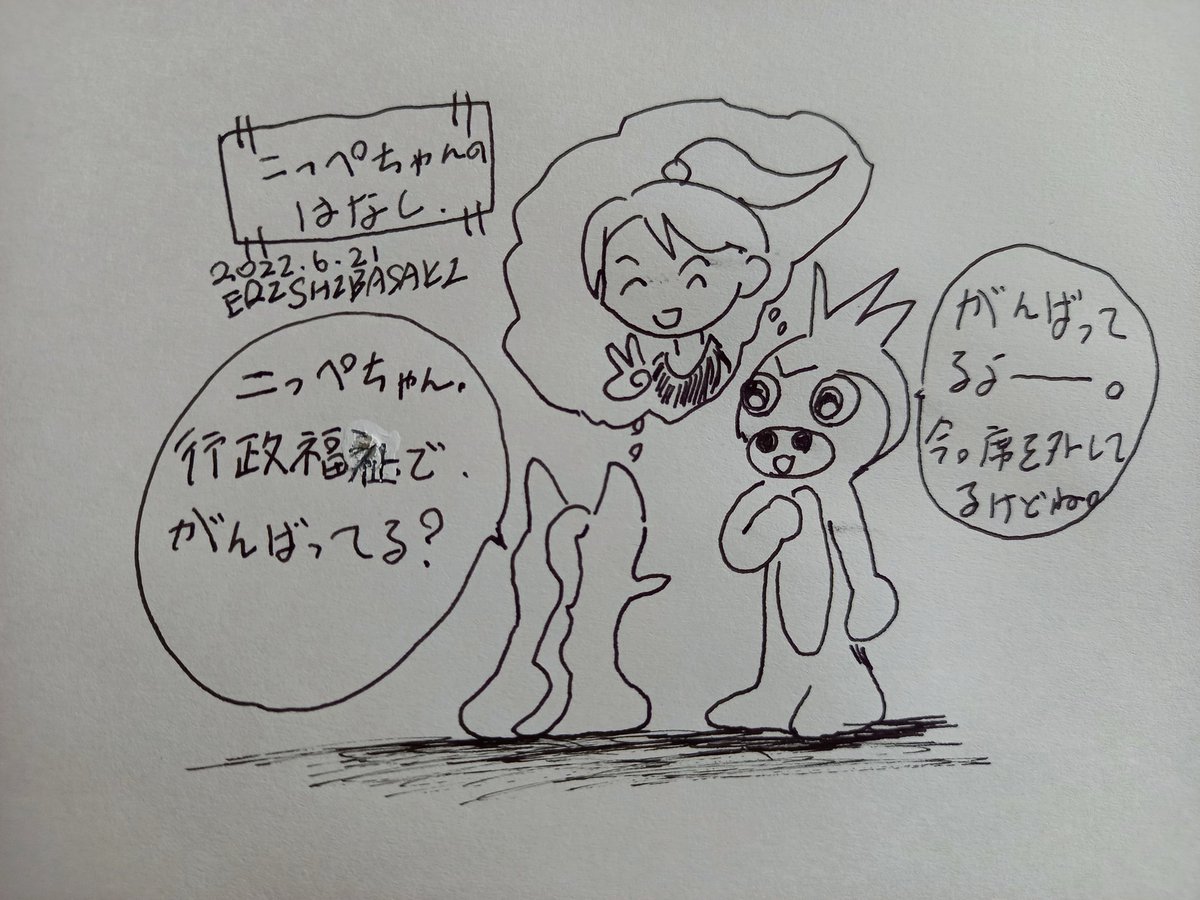 にっぺちゃんの
はなし.
2022.6.21
ERI SHIBASAKI
にっぺちゃん.
行政福祉で.
がんばってる?
がんばって
るよー。
今。席を外して
るけどね。